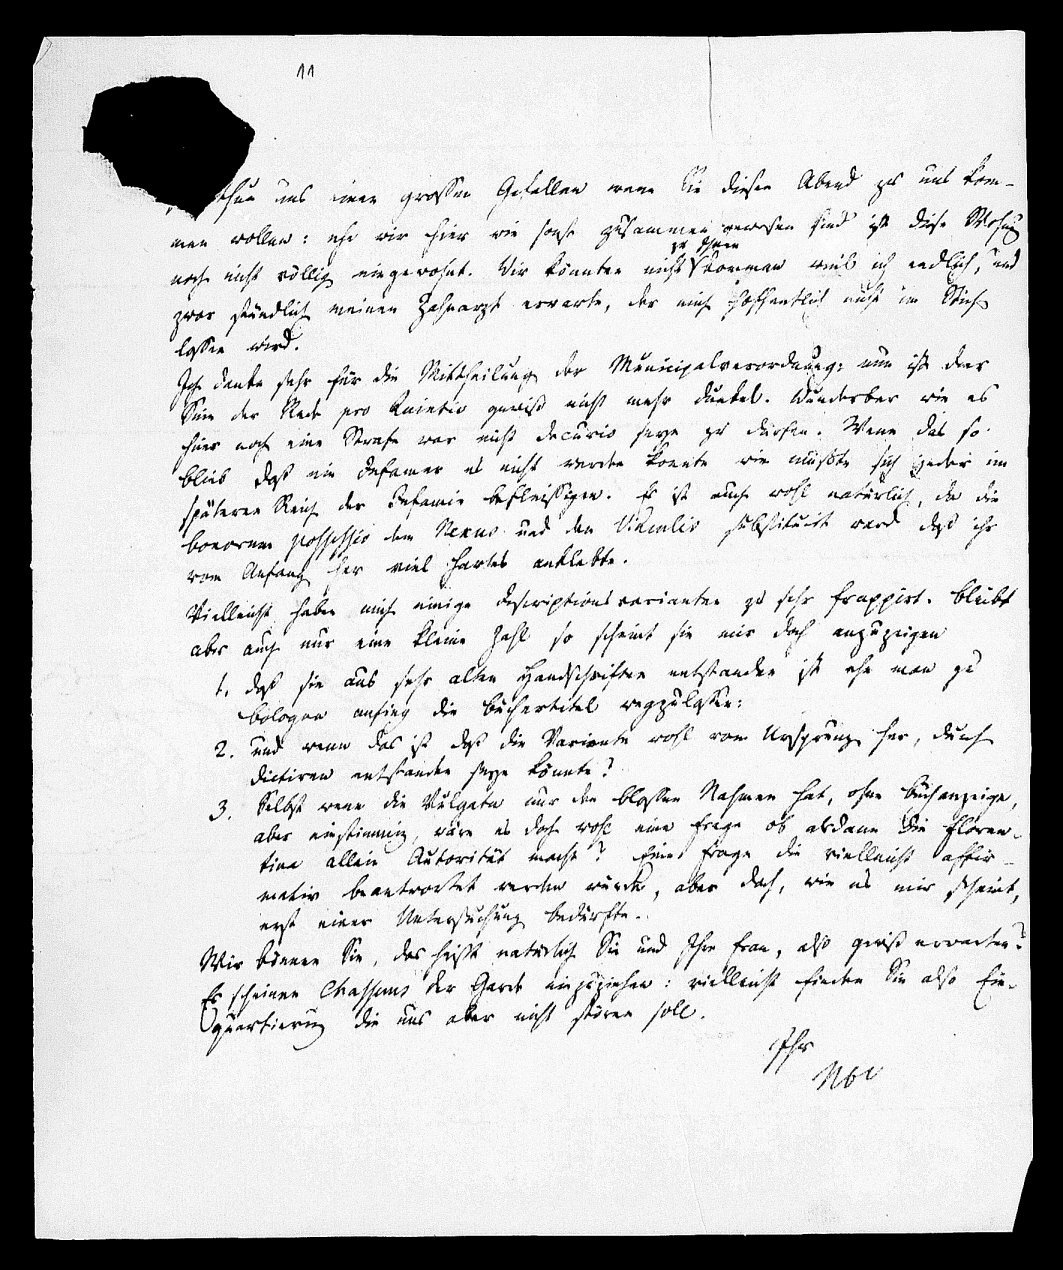 11
thun uns einen grossen Gefallen wenn Sie diesen Abend zu uns kom-
men wollen: ehe wir hier wie sonst zusammen gewesen sind ist diese Wohnung
zu Ihnen
noch nicht völlig eingewohnt. Wir könnten nicht kommen weil ich endlich, und
zwar stündlich meinen Zahnarzt erwarte, der mich hoffentlich nicht im Stich
lassen wird.
Ich danke sehr für die Mittheilung der Municipalverordnung: nun ist der
Sinn der Rede pro Quintio gewiß nicht mehr dunkel. Wunderbar wie es
hier noch eine Strafe war nicht decurio seyn zu dürfen. Wenn das so
blieb daß ein Infamer es nicht werden konnte wie mußte sich jeder im
späteren Reich der Infamie befleissigen. Es ist auch wohl natürlich, da die
bonorum possessio dem Nexus und den Vinculis substituirt ward daß ihr
vom Anfang her viel hartes anklebte.
Vielleicht haben mich einige Inscriptionsvarianten zu sehr frappirt. bleibt
aber auch nur eine kleine Zahl so scheint sie mir doch anzuzeigen
1. daß sie aus sehr alten Handschriften entstanden ist ehe man zu
bologna anfing die büchertitel wegzulassen:
2. und wenn das ist daß die Variante wohl vom Ursprung her, durch
dictiren entstanden seyn könnte?
3. Selbst wenn die Vulgata nur den blossen Nahmen hat, ohne buchanzeige,
aber einstimmig, wäre es doch wohl eine frage ob alsdann die floren-
tina allein Autorität macht? Eine frage die vielleicht affir-
mativ beantwortet werden würde, aber doch, wie es mir scheint,
erst einer Untersuchung bedürfte.
Wir können Sie, das heißt natürlich Sie und Ihre frau, also gewiß erwarten?
Es scheinen Chasseurs der Garde einzuziehen: vielleicht finden Sie also Ein-
quartierung die uns aber nicht stören soll.
Ihr
Nbr